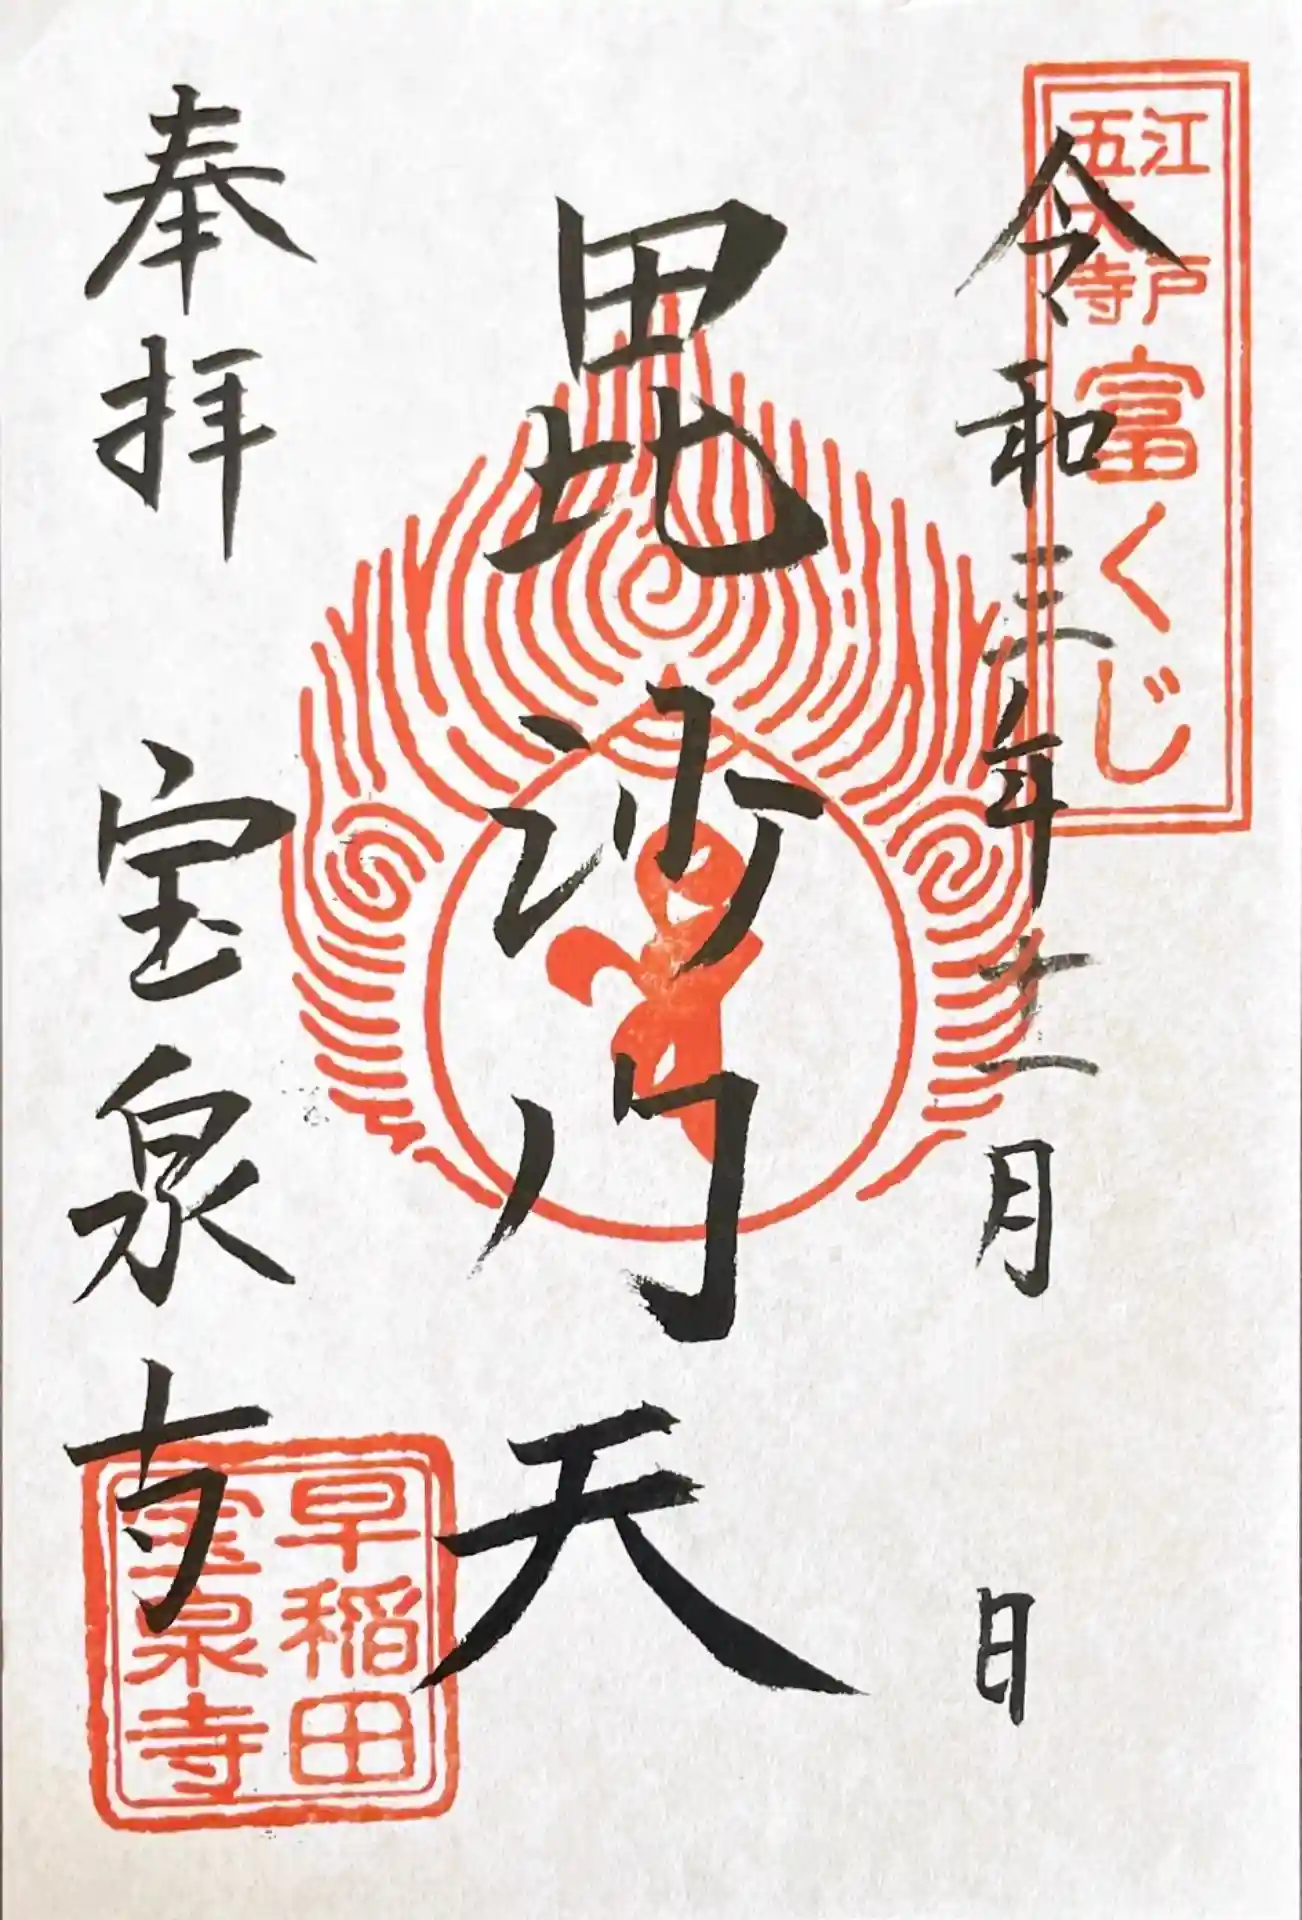 江戸
五大寺
富くじ
令和三年十一月 日
毘沙門天
奉拝 宝泉寺
早稲田
宝泉寺